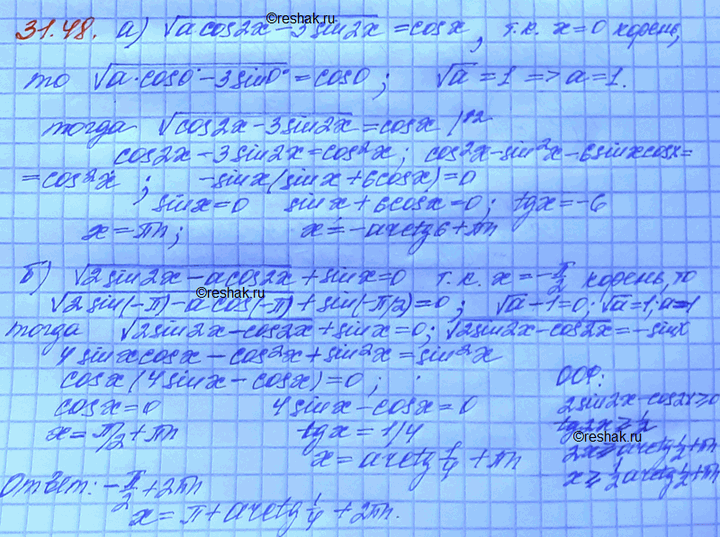 ©reshak.ru
31.48. а) √(a cos2x − 3 sin2x) = cosx, т.к. x=0 корень,
то √(a·cos0° − 3 sin0°) = cos0; √a = 1 => a = 1.
тогда √(cos2x − 3 sin2x) = cosx |^2
cos2x − 3 sin2x = cos²x; cos²x − sin²x − 6 sinx cosx =
= cos²x; −sinx(sinx + 6cosx) = 0
sinx = 0 sinx + 6cosx = 0; tgx = −6
x = πn; x = −arctg6 + πn
б) √(2 sin2x − a cos2x) + sinx = 0 т.к. x = −π/2 корень, то
©reshak.ru
√(2 sin(−π) − a cos(−π)) + sin(−π/2) = 0; √a − 1 = 0; √a = 1; a = 1
тогда √(2 sin2x − cos2x) + sinx = 0; √(2sin2x − cos2x) = −sinx
4 sinx cosx − cos²x + sin²x = sin²x
cosx(4 sinx − cosx) = 0; ООФ:
cosx = 0 4 sinx − cosx = 0 2 sin2x − cos2x ≥ 0
x = π/2 + πn tgx = 1/4 tg2x ≥ 1/2
©reshak.ru
2x ≥ arctg 1/2 + πn
x = arctg 1/4 + πn x ≥ 1/2 arctg 1/2 + πn
Ответ: −π/2 + 2πn
x = π + arctg 1/4 + 2πn.